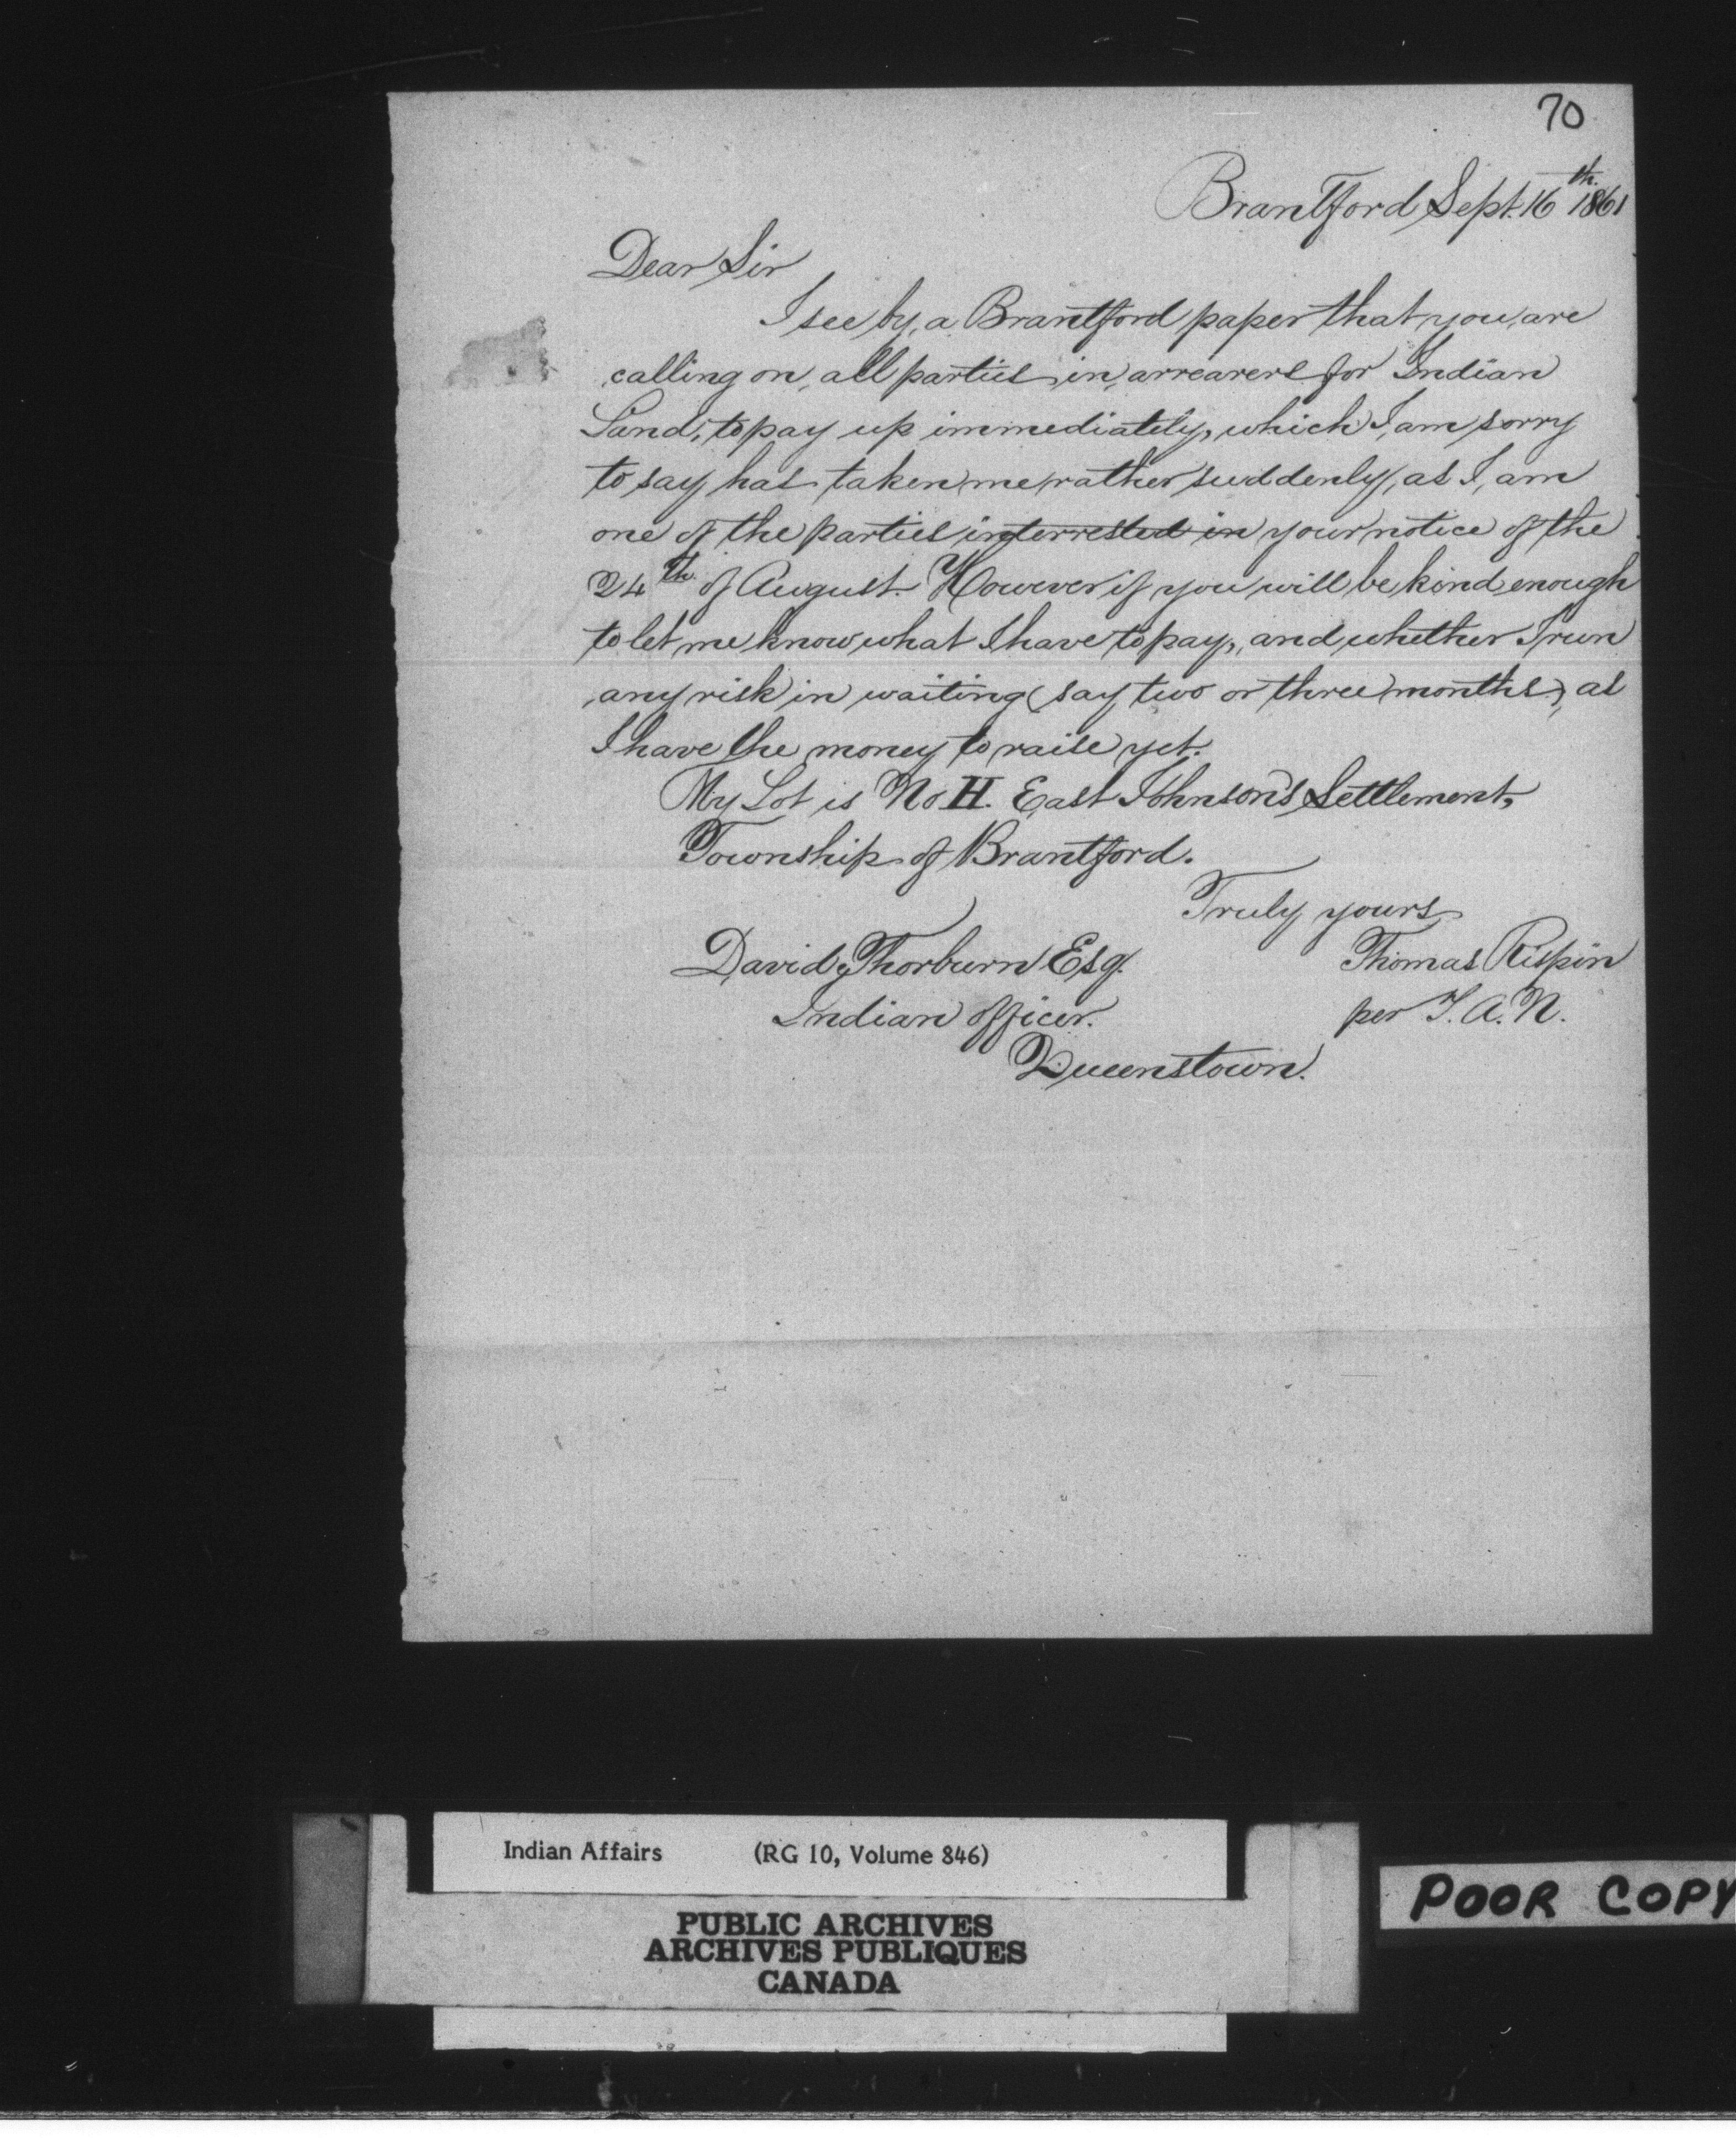 70
Brantford Sept. 16th. 1861
Dear Sir
I see by a Brantford paper that you are
calling on all parties in arrearers for Indian
Land, to pay up immediately, which I am sorry
to say has taken me rather suddenly, as I am
one of the parties interrested in your notice of the
24th. of August. However if you will be kind enough
to let me know what I have to pay, and whether I run
any risk in waiting (say two or three months), as
I have the money to raise yet.
My Lot is No H. East Johnson's Settlement,
Township of Brantford.
Truly yours
David Thorburn Esq. Thomas Rispin
Indian Officer. per T. A. N.
Queenstown.
Indian Affairs (RG 10, Volume 846)
PUBLIC ARCHIVES
ARCHIVES PUBLIQUES
CANADA
POOR COPY